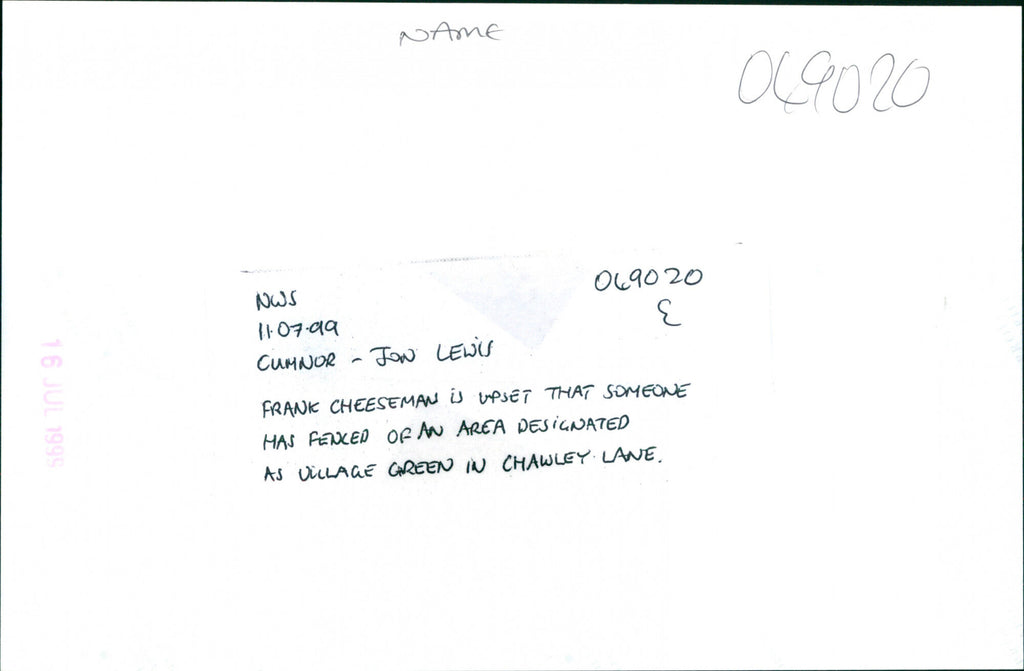 NAME
049020
NWS
049020
11.07.99
E
CUMNOR - JON LEWIS
FRANK CHEESEMAN IS UPSET THAT SOMEONE
HAS FENCED OF AN AREA DESIGNATED
AS VILLAGE GREEN IN CHAWLEY LANE.
16 JUL 1999